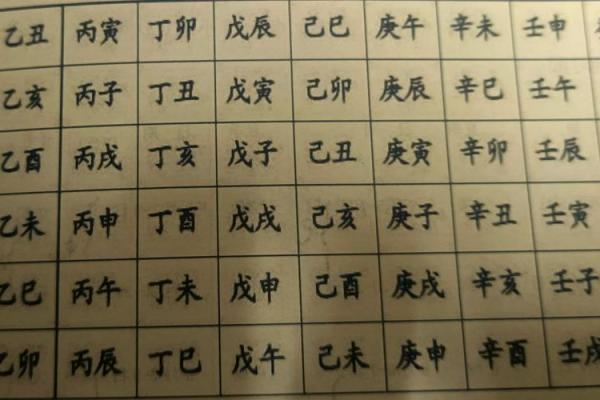 乙丑 丙寅 丁卯 戊辰 己巳 庚午 辛未 壬申
乙亥 丙子 丁丑 戊寅 己卯 庚辰 辛巳 壬午
乙酉 丙戌 丁亥 戊子 己丑 庚寅 辛卯 壬辰
乙未 丙申 丁酉 戊戌 己亥 庚子 辛丑 壬寅
乙巳 丙午 丁未 戊申 己酉 庚戌 辛亥 壬子
乙卯 丙辰 丁巳 戊午 己未 庚申 辛酉 壬戌